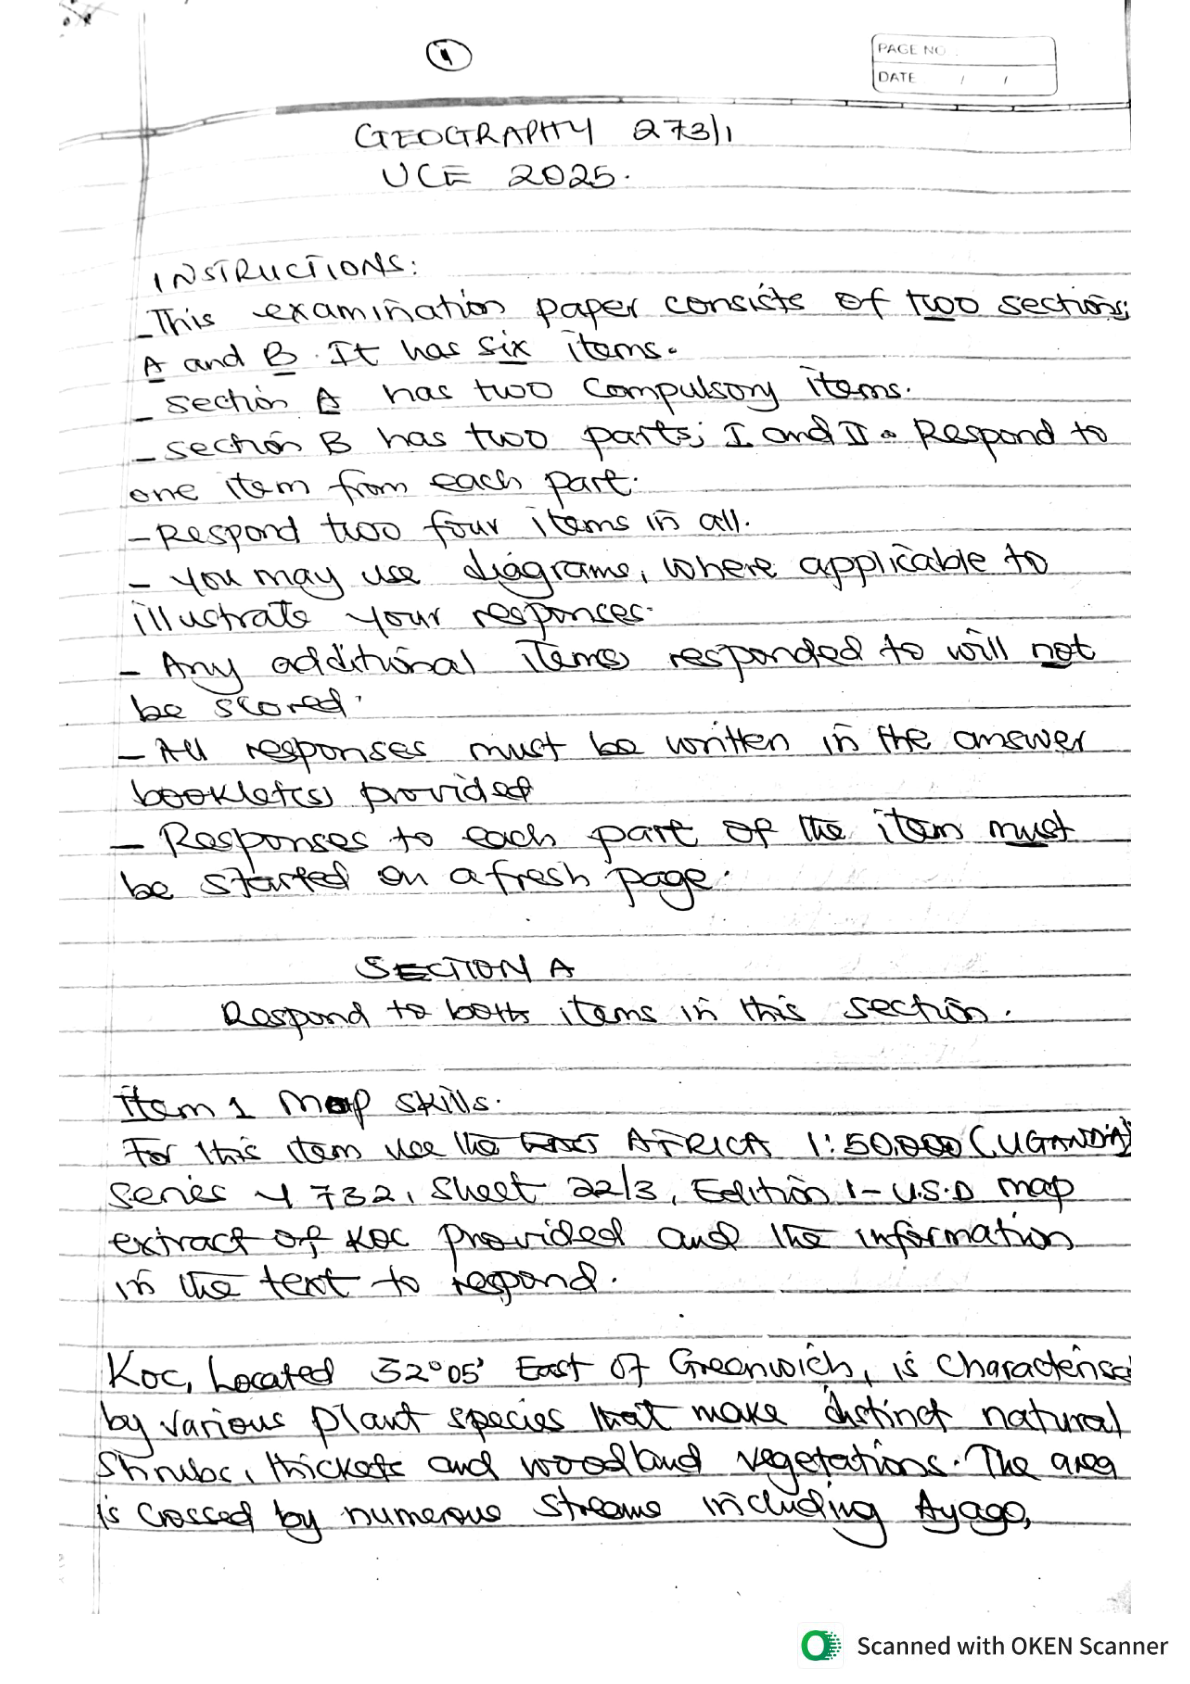 4
PAGE NO.
DATE / /
GEOGRAPHY 273/1
UCE 2025.
INSTRUCTIONS:
- This examination paper consists of two sections;
A and B. It has six items.
- Section A has two compulsory items.
- Section B has two parts; I and II. Respond to
one item from each part.
- Respond two four items in all.
- You may use diagrams, where applicable to
illustrate your responses.
- Any additional items responded to will not
be scored.
- All responses must be written in the answer
booklet(s) provided
- Responses to each part of the item must
be started on a fresh page.
SECTION A
Respond to both items in this section.
Item 1 Map skills.
For this item use the EAST AFRICA 1:50,000 (UGANDA)
Series Y 732, Sheet 22/3, Edition 1-U.S.D map
extract of KOC provided and the information
in the text to respond.
Koc, Located 32°05' East of Greenwich, is characterised
by various plant species that make distinct natural
Shrubs, thickets and woodland vegetations. The area
is crossed by numerous streams including Ayago,
Scanned with OKEN Scanner